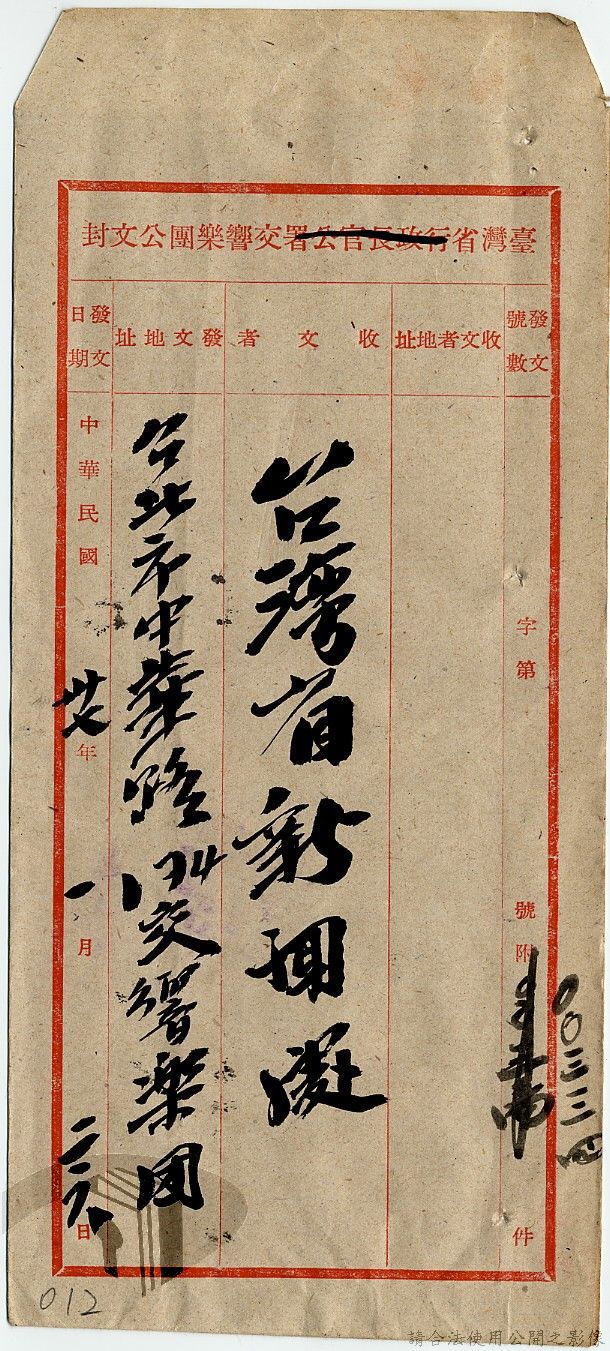 臺灣省行政長官公署交響樂團公文封
發文號數
收文者地址
收文者
發文地址
發文日期
字第 號附 件
〇〇三三四
台湾省
台北市中華路174交響楽団
中華民國卅七年一月二六日
012
請合法使用公開之影像